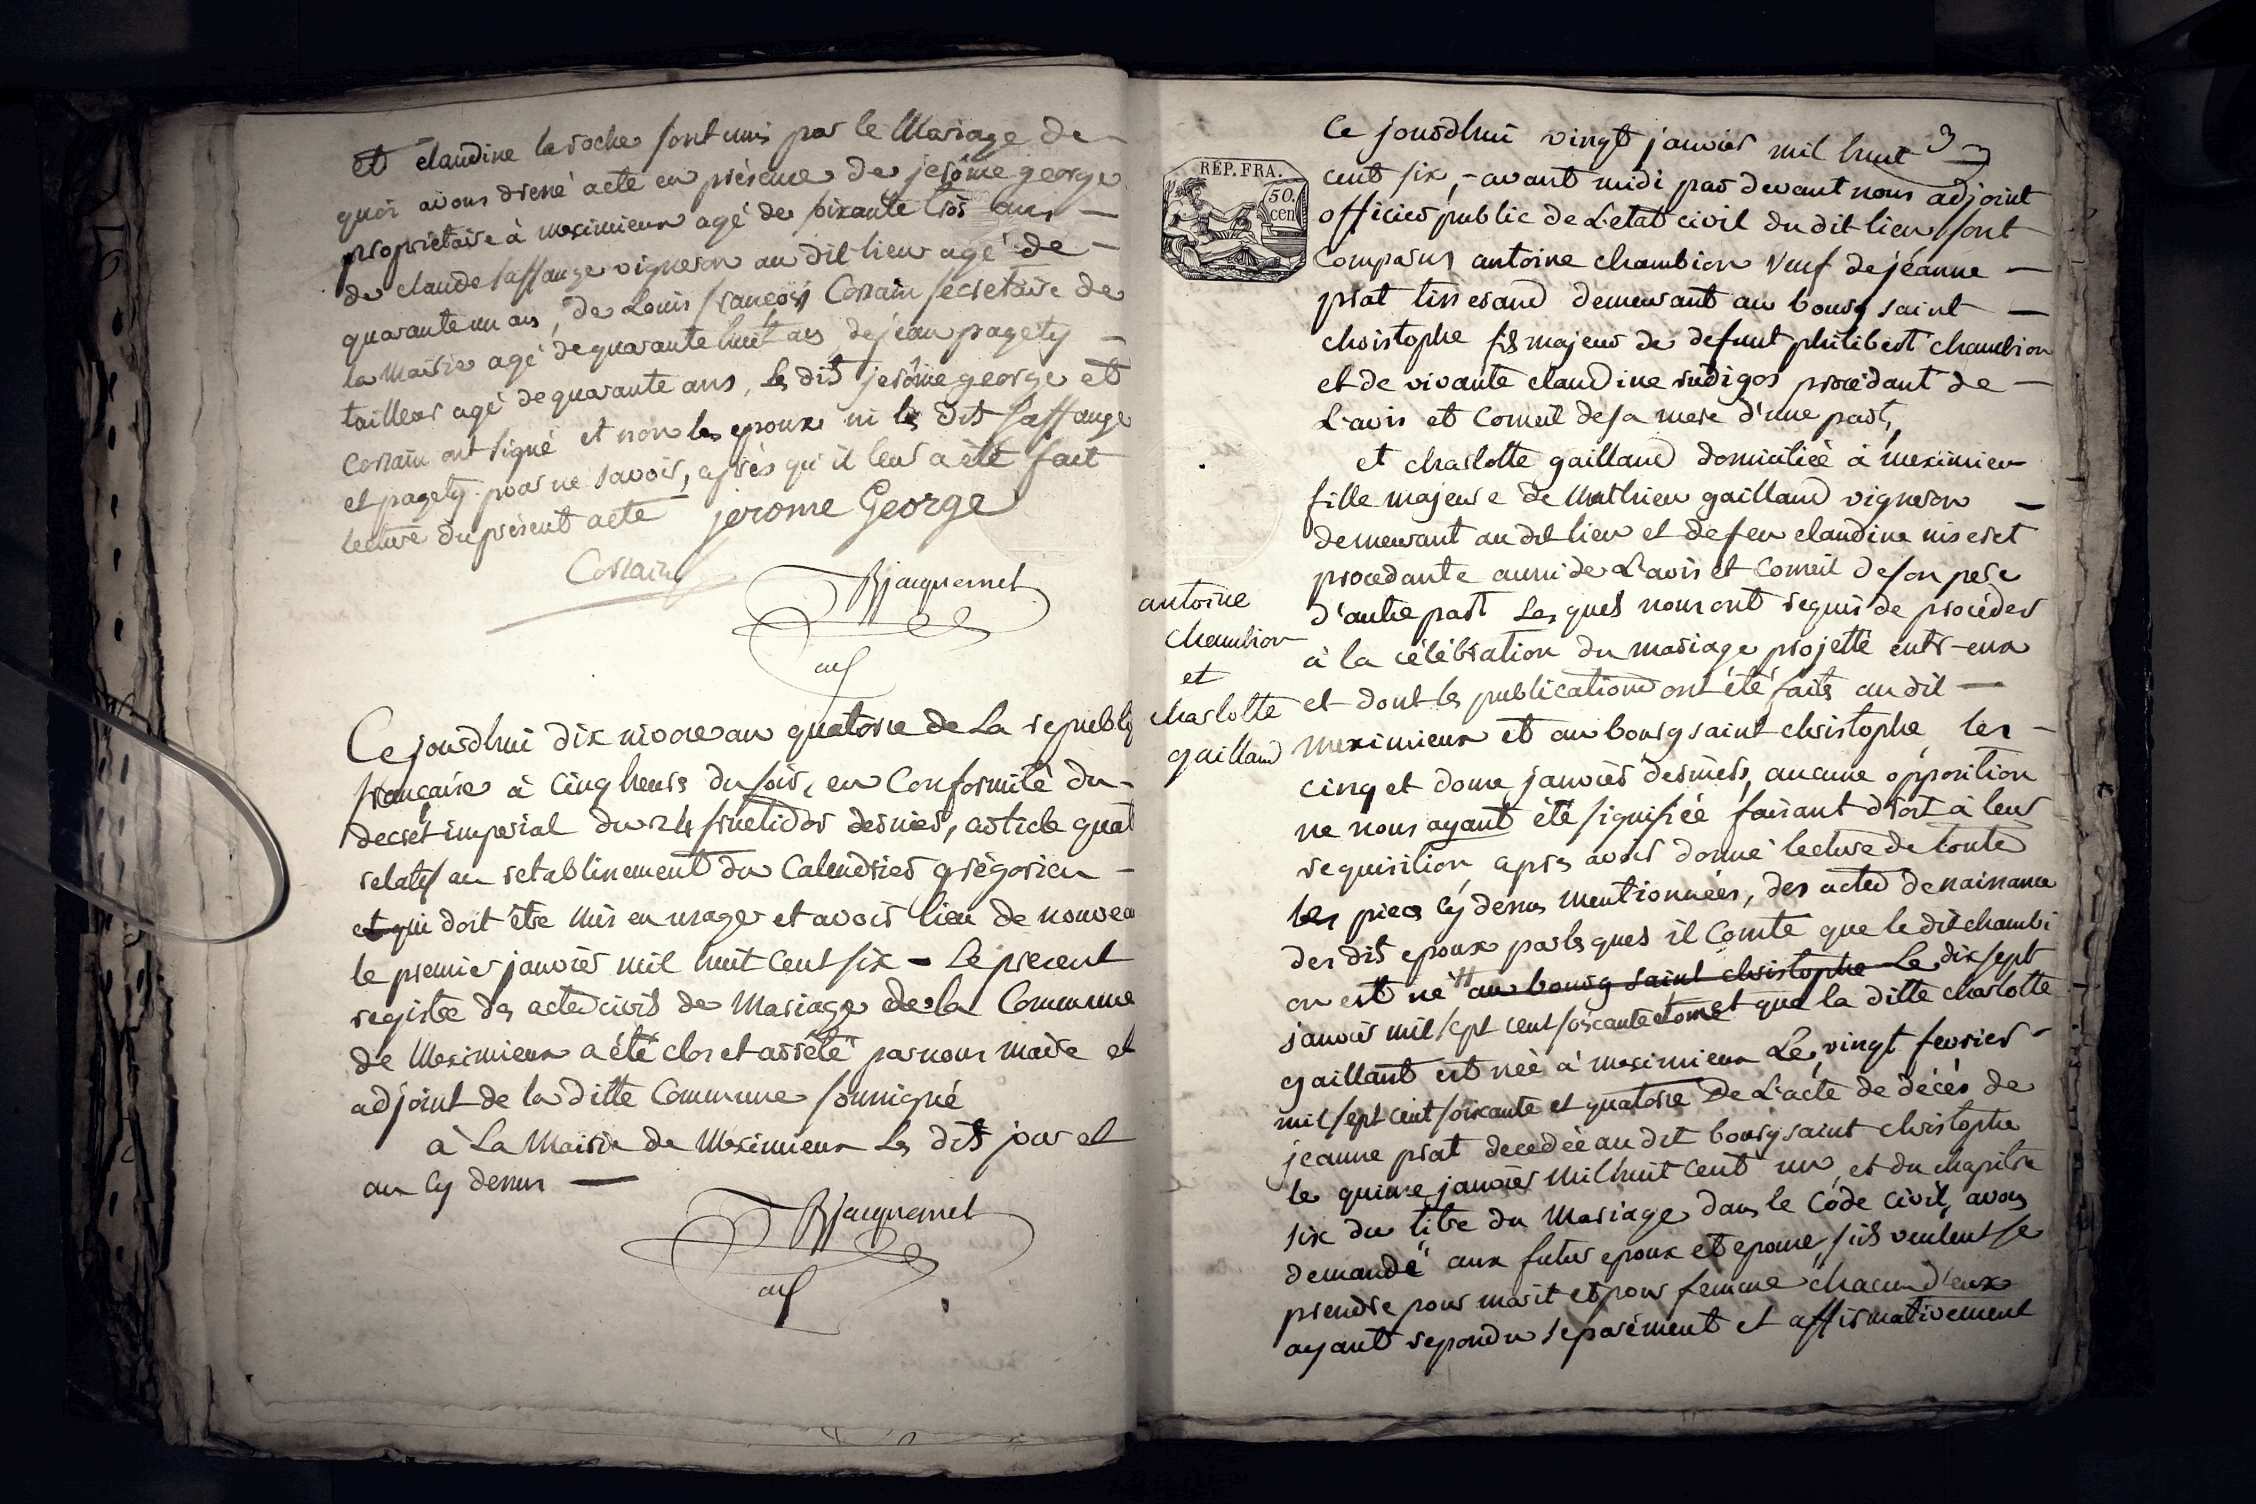 et claudine laroche sont unis par le Mariage de
quoi avons dressé acte en présence de jerôme george
proprietaire à meximieux agé de soixante trois ans
de claude saffange vigneron au dit lieu agé de
quarante un ans, de Louis françois Corrain secretaire de
la Mairie agé de quarante huit ans de jean pagety
tailleur agé de quarante ans, les dits jerôme george et
Corrain ont signé et non les epoux ni les dits saffange
et pagety pour ne savoir, après qu'il leur a èté fait
lecture du présent acte jerome George
Corrain
Bjacquemet
Ce jourdhui dix nivose an quatorse de La republi
française à cinq heures du soir, en Conformité du
decret imperial du 24 fructidor dernier, article quat
relatif au retablissement du Calendrier grégorien
et qui doit être mis en usage et avoir lieu de nouveau
le premier janvier mil huit cent six - Le present
registre des actes civils de Mariage de la Commune
de Meximieux a été clos et arrêté par nous maire et
adjoint de la ditte Commune soussigné
à La Mairie de Meximieux Les dits jour et
an cy dessus
Bjacquemet
3
REP. FRA.
50.
cen
Ce jourdhui vingt janvier mil huit
cent six, avant midi par devant nous adjoint
officier public de L'etat civil du dit lieu sont
Comparus antoine chambion veuf de jéanne
prat tisserand demeurant au bourg saint
christophe fils majeur de defunt philibert chambion
et de vivante claudine rudigoz procedant de
L'avis et Conseil de sa mere d'une part,
et charlotte gailland domiciliée à meximieux
fille majeure de Mathieu gailland vigneron
demeurant au dit lieu et de feu claudine niseret
procedante aussi de L'avis et Conseil de son pere
d'autre part Les quels nous ont requis de procéder
à la célébration du mariage projetté entr-eux
et dont les publications ont été faites au dit
meximieux et au bourg saint christophe les
cinq et douze janvier derniers, aucune opposition
ne nous ayant été signifiée faisant droit à leur
requisition, après avoir donné lecture de toutes
les pieces cy dessus mentionnées, des actes de naissance
des dits epoux par lesquels il Conste que le dit chambi
on est né # au bourg saint christophe Le dix sept
janvier mil sept cent soixante et onze et que la ditte charlotte
gaillant est née à meximieux Le vingt fevrier
mil sept cent soixante et quatorse De L'acte de décès de
jeanne prat decedée au dit bourg saint christophe
le quinze janvier Mil huit cent un, et du chapitre
six du titre du Mariage dans le Code Civil, avons
demandé aux futurs epoux et epouse, s'ils veulent se
prendre pour marit et pour femme chacun d'eux
ayant repondu separément et affirmativement
antoine
chambion
et
charlotte
gailland